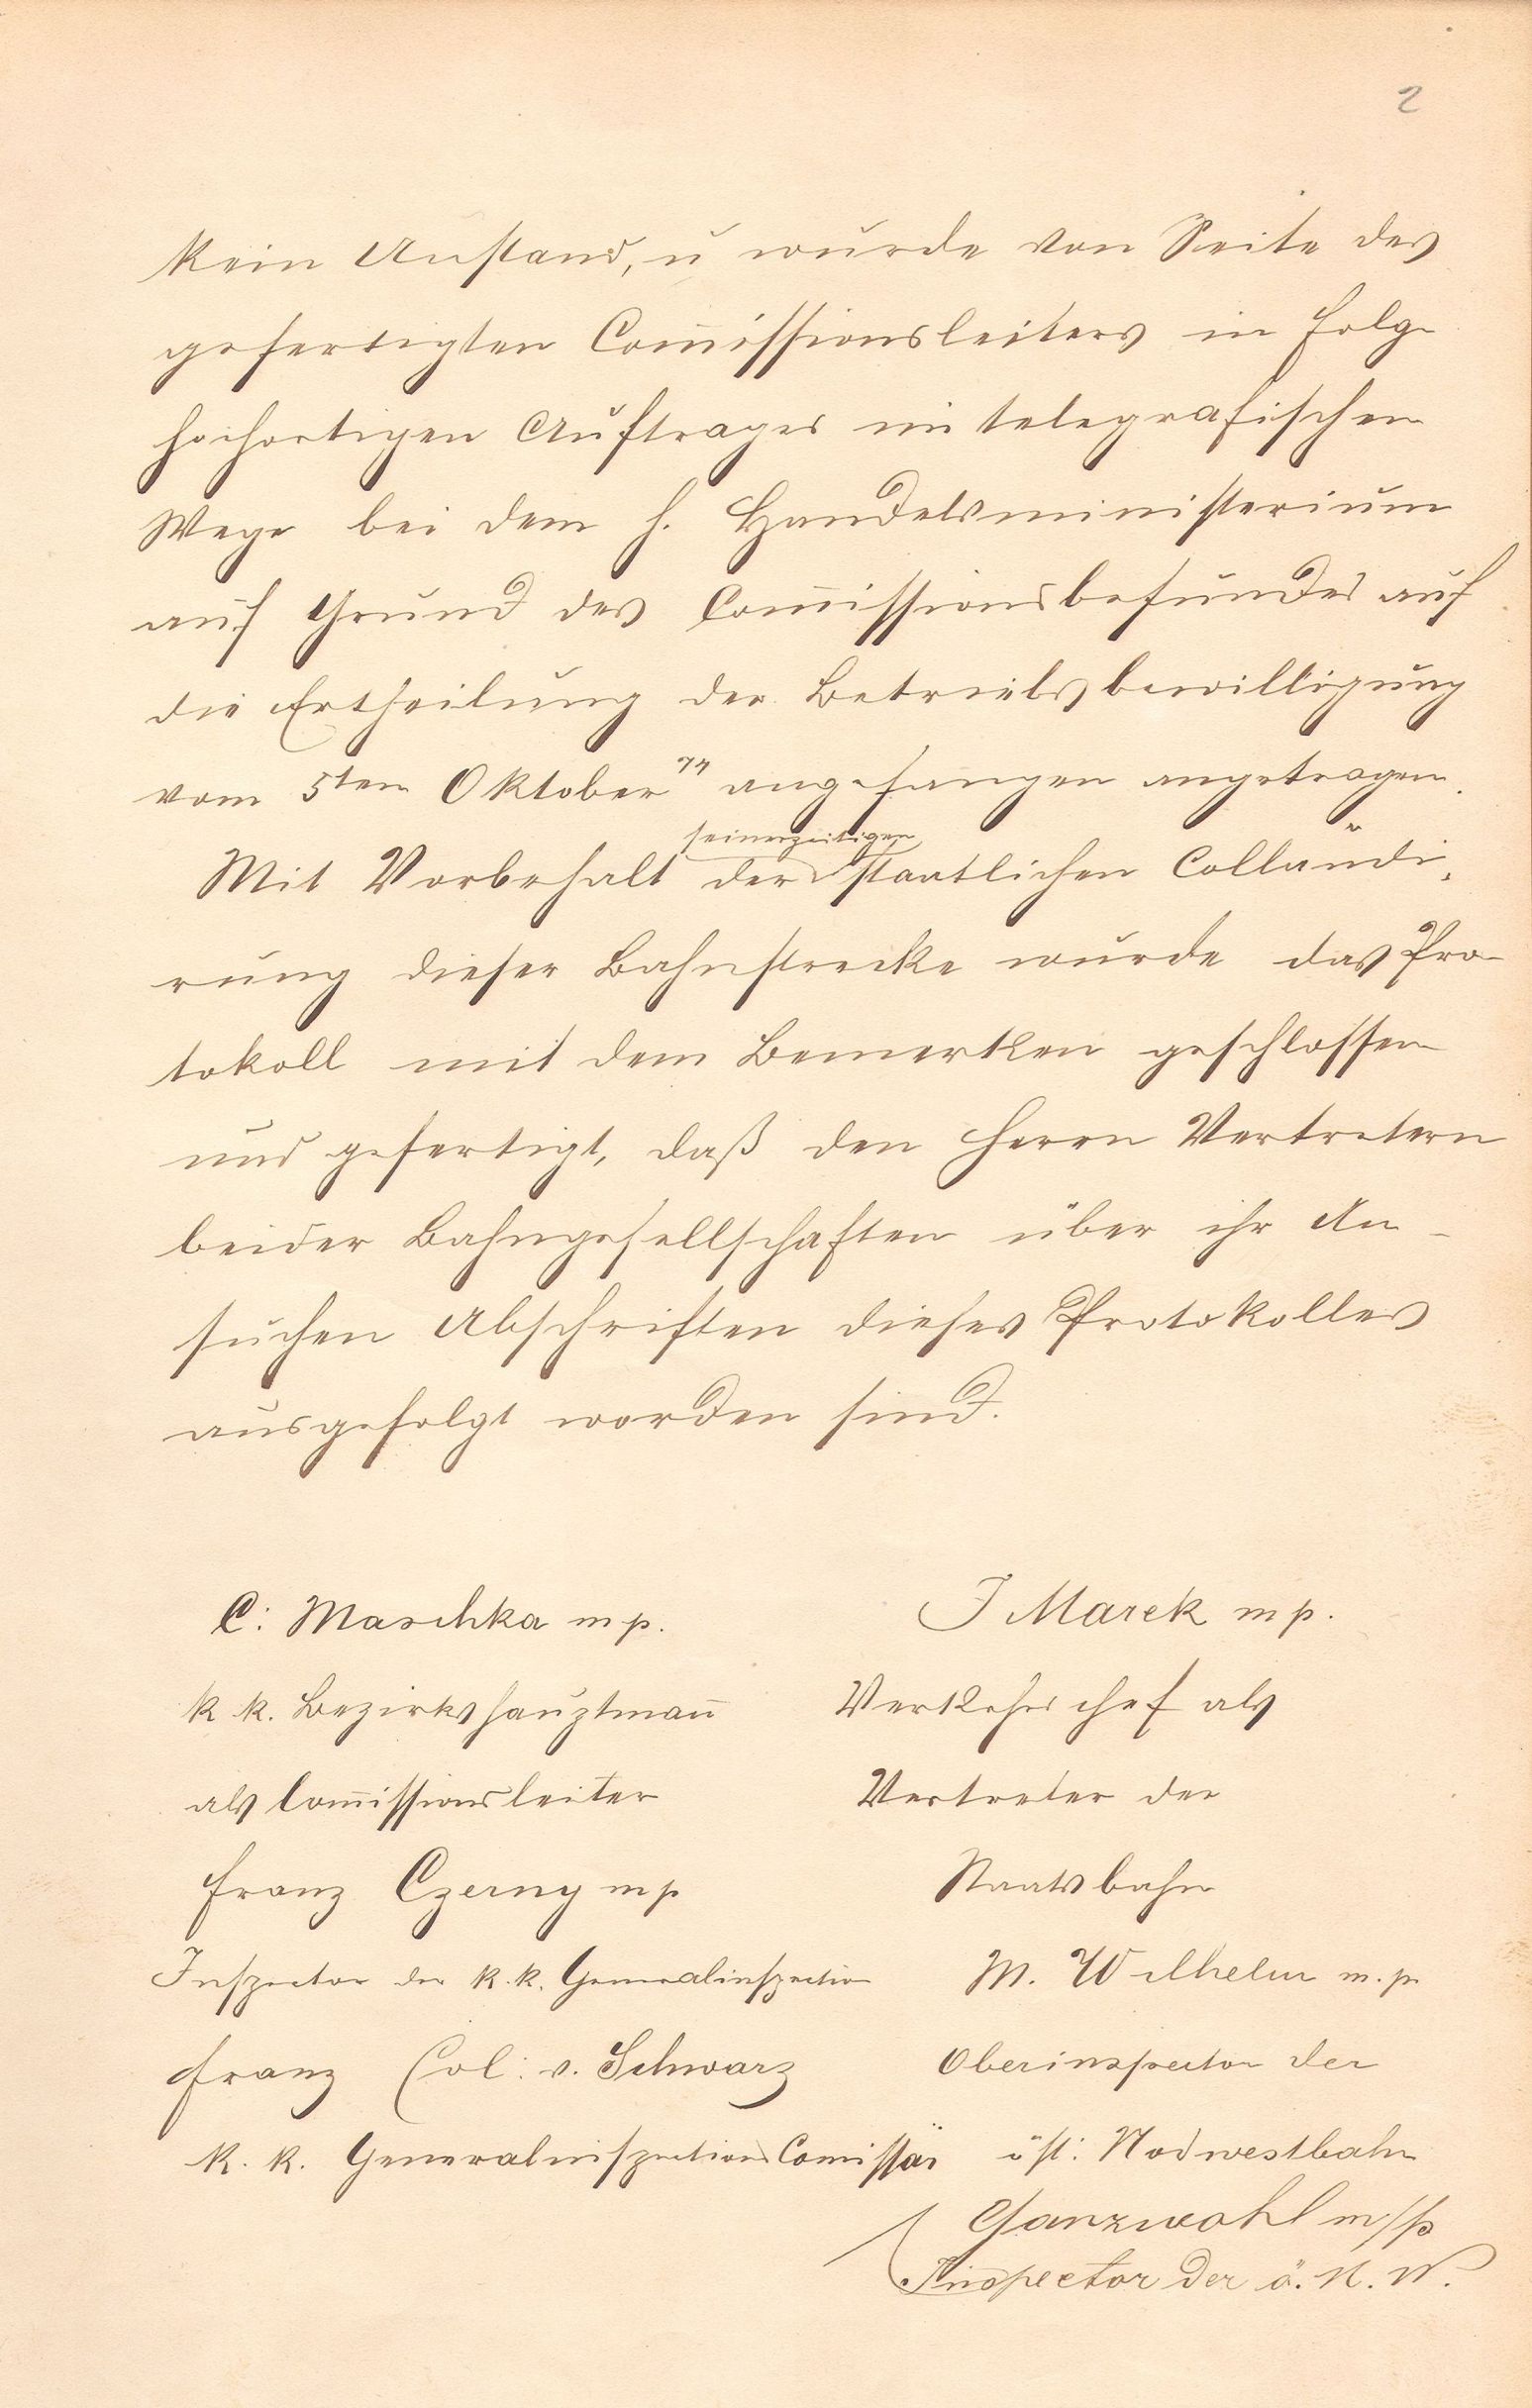 2
kein Anstand, u wurde von Seite des
gefertigten Com̄issionsleiters in Folge
hochortigen Auftrages im telegrafischen
Wege bei dem h. Handelsministerium
auf Grund des Com̄issionsbefundes auf
die Ertheilung der Betriebsbewilligung
vom 5ten Oktober 74 angefangen angetragen.
seinerzeitigen
Mit Vorbehalt der staatlichen Collaudi-
rung dieser Bahnstrecke wurde das Pro-
tokoll mit dem Bemerken geschlossen
und gefertigt, daß den Herrn Vertretern
beider Bahngesellschaften über ihr An-
suchen Abschriften dieses Protokolles
ausgefolgt worden sind.
C: Maschka mp.
k. k. Bezirkshauptman̄
als Com̄issionsleiter
Franz Czerny mp
Inspector der k. k. Generalinspection
Franz Col: v. Schwarz
k. k. Generalinspections Com̄issär
J Marek mp.
Verkehrschef als
Vertreter der
Staatsbahn
M. Wilhelm m. p
Oberinspector der
öst: Nodwestbahn
Ganzwohl m/p
Inspector der ö. N. W.